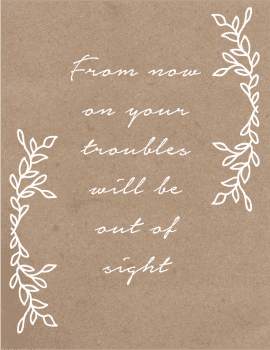 From now
on your
troubles
will be
out of
sight